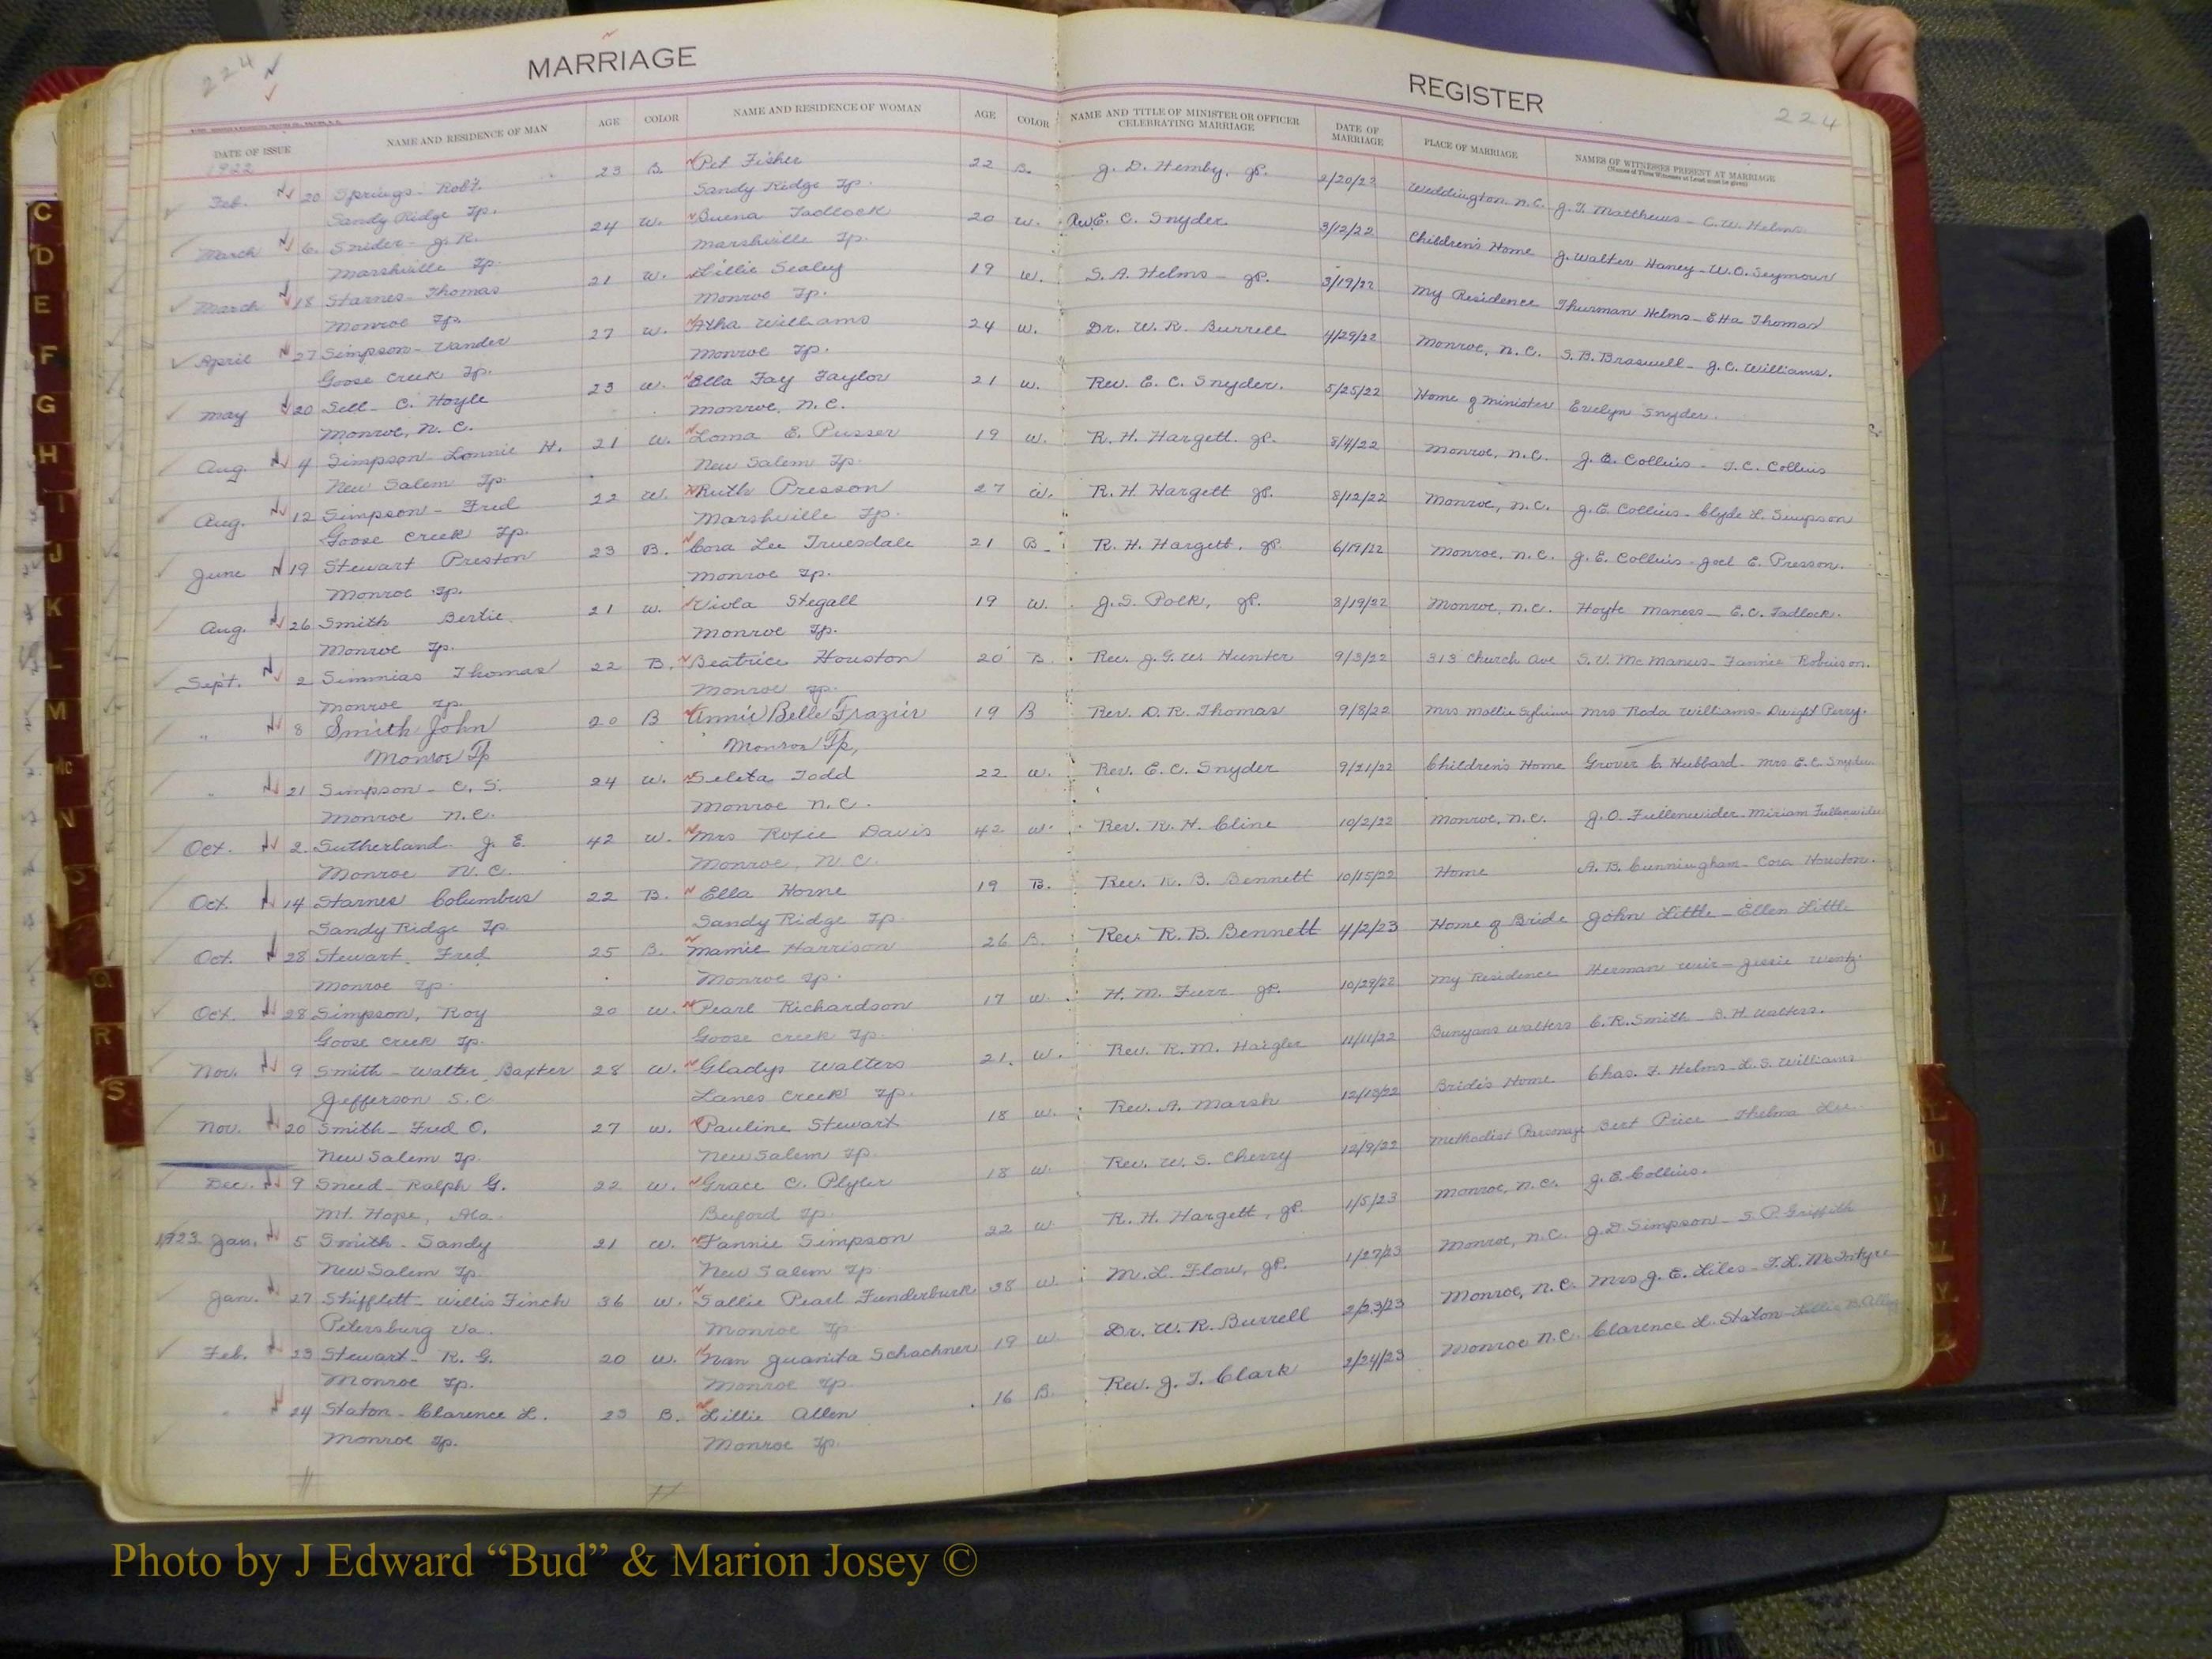 224
MARRIAGE
REGISTER
224
DATE OF ISSUE NAME AND RESIDENCE OF MAN AGE COLOR NAME AND RESIDENCE OF WOMAN AGE COLOR NAME AND TITLE OF MINISTER OR OFFICER CELEBRATING MARRIAGE DATE OF MARRIAGE PLACE OF MARRIAGE NAMES OF WITNESSES PRESENT AT MARRIAGE
1922
Feb. 20 Springs - Robt. 23 B. Pet Fisher 22 B. J. D. Hemby, JP. 2/20/22 Weddington N.C. J. T. Matthews - C. W. Helms
Sandy Ridge Tp. Sandy Ridge Tp.
March 6. Snider - J. R. 24 W. Buena Tadlock 20 W. Rev E. C. Snyder 3/12/22 Children's Home J. Walter Haney - W. O. Seymour
Marshville Tp. Marshville Tp.
March 18 Starnes - Thomas 21 W. Lillie Sealey 19 W. S. A. Helms - JP. 3/19/22 My Residence Thurman Helms - Etta Thomas
Monroe Tp. Monroe Tp.
April 27 Simpson - Vander 27 W. Atha Williams 24 W. Dr. W. R. Burrell 4/29/22 Monroe, N.C. S. B. Braswell - J. C. Williams.
Goose Creek Tp. Monroe Tp.
May 20 Sell - C. Hoyle 23 W. Ella Fay Taylor 21 W. Rev. E. C. Snyder. 5/25/22 Home of Minister Evelyn Snyder.
Monroe, N.C. Monroe, N.C.
Aug. 4 Simpson - Lonnie H. 21 W. Loma E. Pusser 19 W. R. H. Hargett JP. 8/4/22 Monroe, N.C. J. E. Collins - J. C. Collins
New Salem Tp. New Salem Tp.
Aug. 12 Simpson - Fred 22 W. Ruth Presson 27 W. R. H. Hargett JP. 8/12/22 Monroe, N.C. J. E. Collins - Clyde L. Simpson
Goose Creek Tp. Marshville Tp.
June 19 Stewart Preston 23 B. Cora Lee Truesdale 21 B. R. H. Hargett, JP. 6/19/22 Monroe, N.C. J. E. Collins - Joel E. Presson.
Monroe Tp. Monroe Tp.
Aug. 26 Smith Bertie 21 W. Viola Stegall 19 W. J. S. Polk, JP. 8/19/22 Monroe, N.C. Hoyte Maness - E. C. Tadlock.
Monroe Tp. Monroe Tp.
Sept. 2 Simmias Thomas 22 B. Beatrice Houston 20 B. Rev. J. G. W. Hunter 9/3/22 313 Church Ave S. V. McManus - Fannie Robinson.
Monroe Tp. Monroe Tp.
" 8 Smith John 20 B Annie Belle Frazier 19 B Rev. D. R. Thomas 9/8/22 Mrs Mollie Mrs Roda Williams - Dwight Perry.
Monroe Tp Monroe Tp,
" 21 Simpson - C. S. 24 W. Seleta Todd 22 W. Rev. E. C. Snyder 9/21/22 Children's Home Grover C. Hubbard - Mrs E. C. Snyder
Monroe N.C. Monroe N.C.
Oct. 2. Sutherland J. E. 42 W. Mrs Roxie Davis 42 W. Rev. R. H. Cline 10/2/22 Monroe, N.C. J. O. Fullenwider - Miriam Fullenwider
Monroe N.C. Monroe, N.C.
Oct. 14 Starnes Columbus 22 B. Ella Horne 19 B. Rev. R. B. Bennett 10/15/22 Home A. B. Cunningham - Cora Houston.
Sandy Ridge Tp Sandy Ridge Tp
Oct. 28 Stewart, Fred 25 B. Mamie Harrison 26 B. Rev. R. B. Bennett 4/2/23 Home of Bride John Little - Ellen Little
Monroe Tp. Monroe Tp.
Oct. 28 Simpson, Roy 20 W. Pearl Richardson 17 W. H. M. Furr JP. 10/29/22 My Residence Herman Weir - Jessie Wentz
Goose Creek Tp. Goose Creek Tp.
Nov. 9 Smith - Walter Baxter 28 W. Gladys Walters 21. W. Rev. R. M. Haigler 11/11/22 Bunyans Walters C. R. Smith - B. H. Walters.
Jefferson S.C. Lanes Creek Tp.
Nov. 20 Smith - Fred O. 27 W. Pauline Stewart 18 W. Rev. A. Marsh 12/13/22 Bride's Home Chas. F. Helms - L. S. Williams
New Salem Tp. New Salem Tp.
Dec. 9 Sneed - Ralph G. 22 W. Grace C. Plyler 18 W. Rev. W. S. Cherry 12/9/22 Methodist Parsonage Bert Price - Thelma Lee.
Mt. Hope, Ala. Buford Tp.
1923 Jan. 5 Smith - Sandy 21 W. Fannie Simpson 22 W R. H. Hargett, JP. 1/5/23 Monroe, N.C. J. E. Collins.
New Salem Tp. New Salem Tp
Jan. 27 Shifflett - Willis Finch 36 W. Sallie Pearl Funderburk 38 W. M. L. Flow, JP. 1/27/23 Monroe, N.C. J. D. Simpson - S. P. Griffith
Petersburg Va. Monroe Tp
Feb. 23 Stewart - R. G. 20 W. Nan Juanita Schachner 19 W Dr. W. R. Burrell 2/23/23 Monroe, N.C. Mrs J. E. Liles - F. L. McIntyre
Monroe Tp. Monroe Tp
" 24 Staton - Clarence L. 23 B. Lillie Allen 16 B. Rev. J. T. Clark 2/24/23 Monroe N.C. Clarence L. Staton - Lillie B. Allen
Monroe Tp. Monroe Tp.
C
D
E
F
G
H
I
J
K
L
M
Mc
N
O
Q
R
S
Photo by J Edward “Bud” & Marion Josey ©